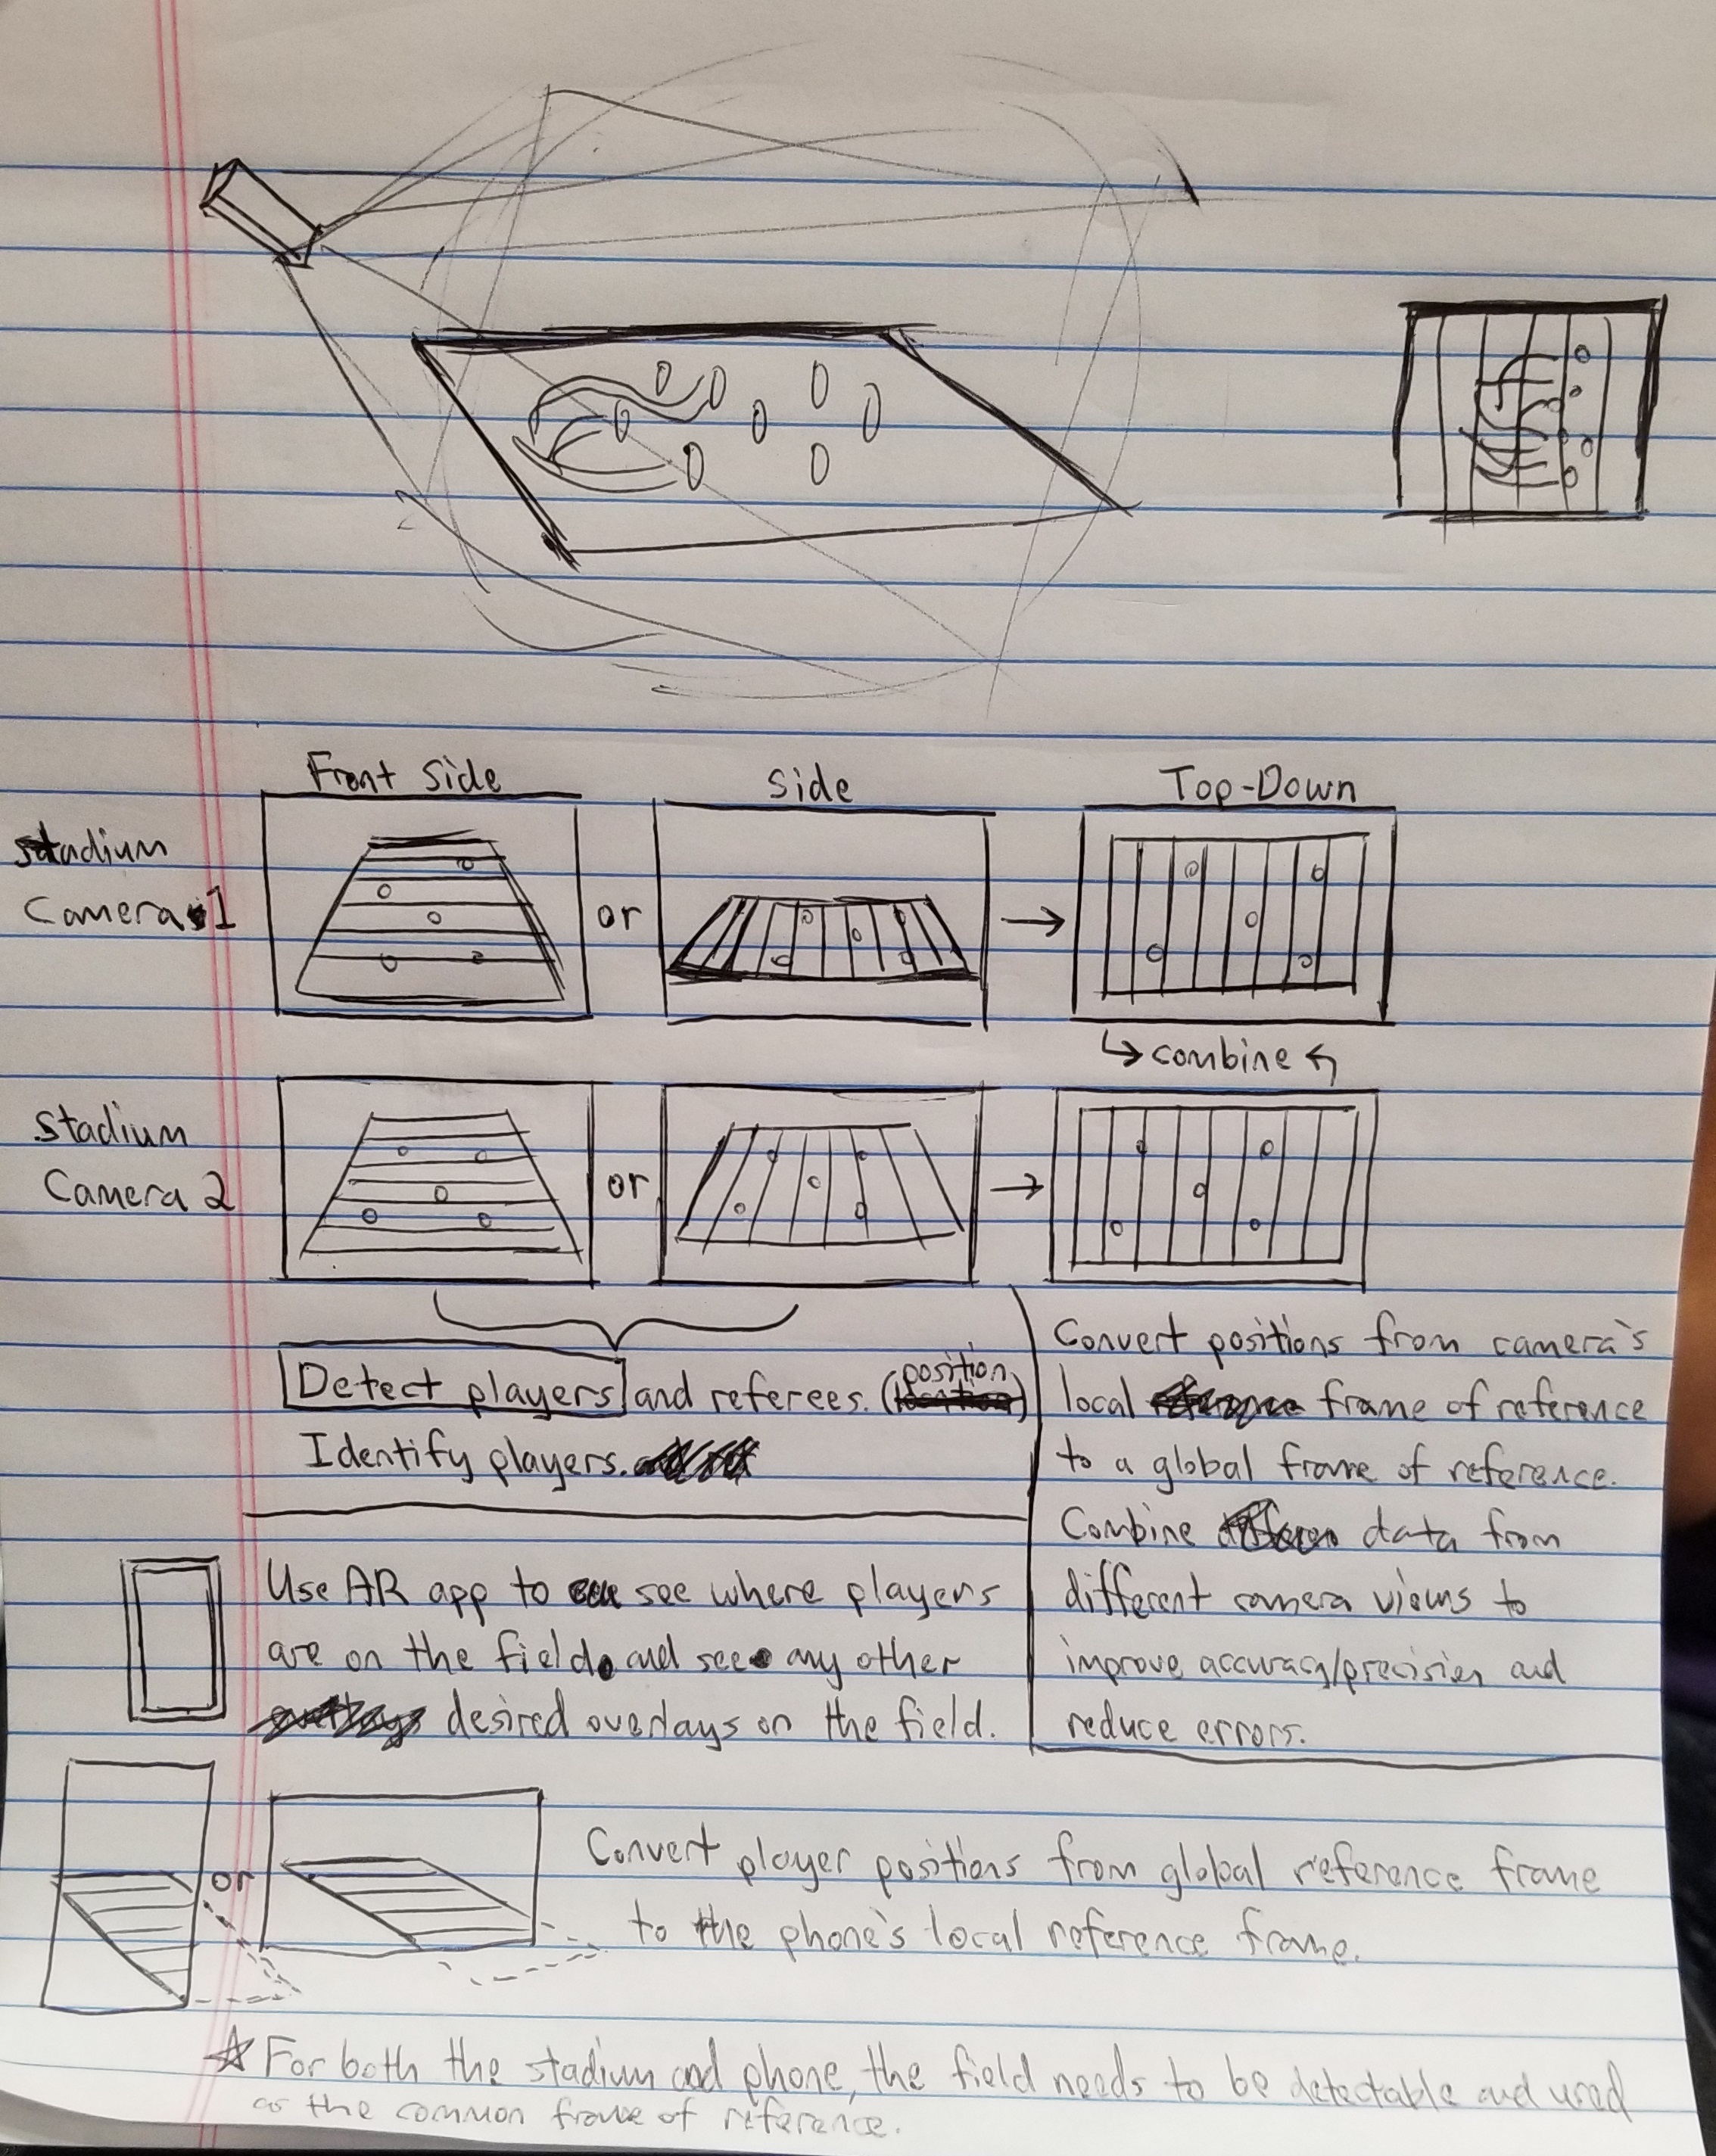 Front Side
Side
Top-Down
stadium
Camera 1
or
combine
stadium
Camera 2
or
Detect players and referees. (position)
Identify players.
Convert positions from camera's
local frame of reference
to a global frame of reference.
Combine data from
different camera views to
improve accuracy/precision and
reduce errors.
Use AR app to see where players
are on the field and see any other
desired overlays on the field.
or
Convert player positions from global reference frame
to the phone's local reference frame.
☆ For both the stadium and phone, the field needs to be detectable and used
as the common frame of reference.